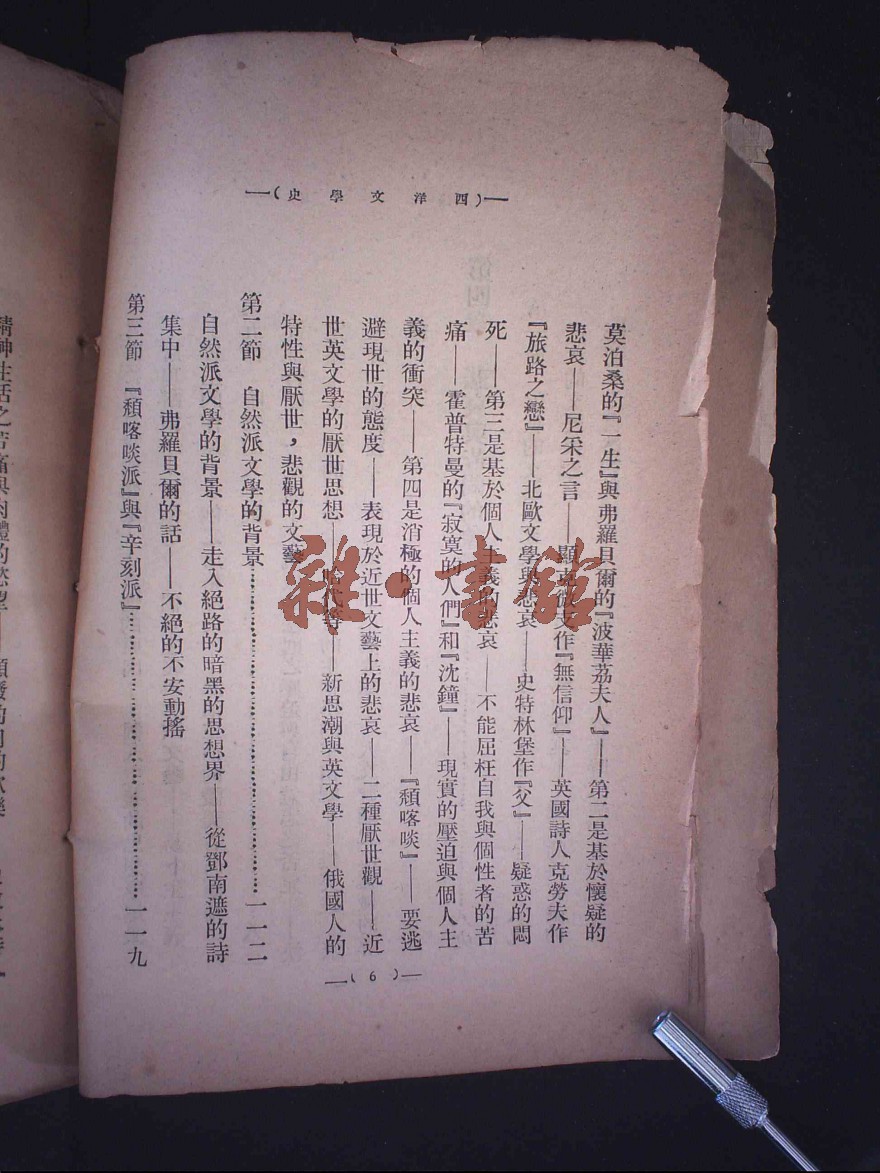 —(西洋文學史)—
莫泊桑的『一生』與弗羅貝爾的『波華荔夫人』——第二是基於懷疑的
悲哀——尼采之言——顯克微支作『無信仰』——英國詩人克勞夫作
『旅路之戀』——北歐文學與悲哀——史特林堡作『父』——疑惑的悶
死——第三是基於個人主義的悲哀——不能屈枉自我與個性者的苦
痛——霍普特曼的『寂寞的人們』和『沈鐘』——現實的壓迫與個人主
義的衝突——第四是消極的個人主義的悲哀——『頹喀啖』——要逃
避現世的態度——表現於近世文藝上的悲哀——二種厭世觀——近
世英文學的厭世思想——哈代等——新思潮與英文學——俄國人的
特性與厭世,悲觀的文藝
第二節 自然派文學的背景……………………一一二
自然派文學的背景——走入絕路的暗黑的思想界——從鄧南遮的詩
集中——弗羅貝爾的話——不絕的不安動搖
第三節 『頹喀啖派』與『辛刻派』……………………一一九
—(6)—
精神生活之苦痛與肉體的慾望——
雜·書館